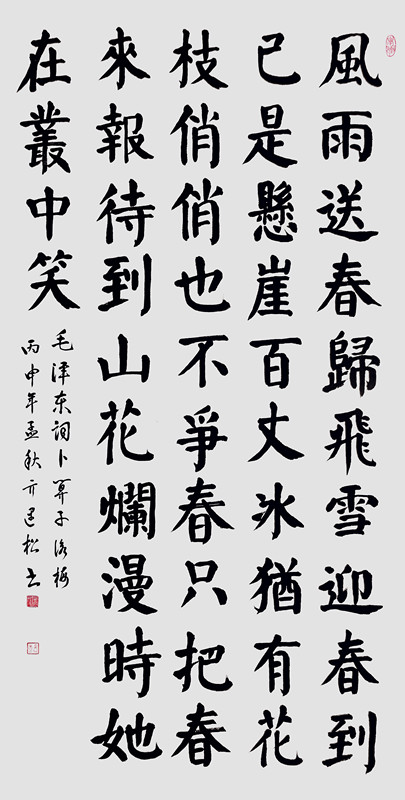 風雨送春歸飛雪迎春到
已是懸崖百丈冰猶有花
枝俏俏也不爭春只把春
來報待到山花爛漫時她
在叢中笑
毛澤东詞卜算子詠梅
丙申年孟秋亓松书